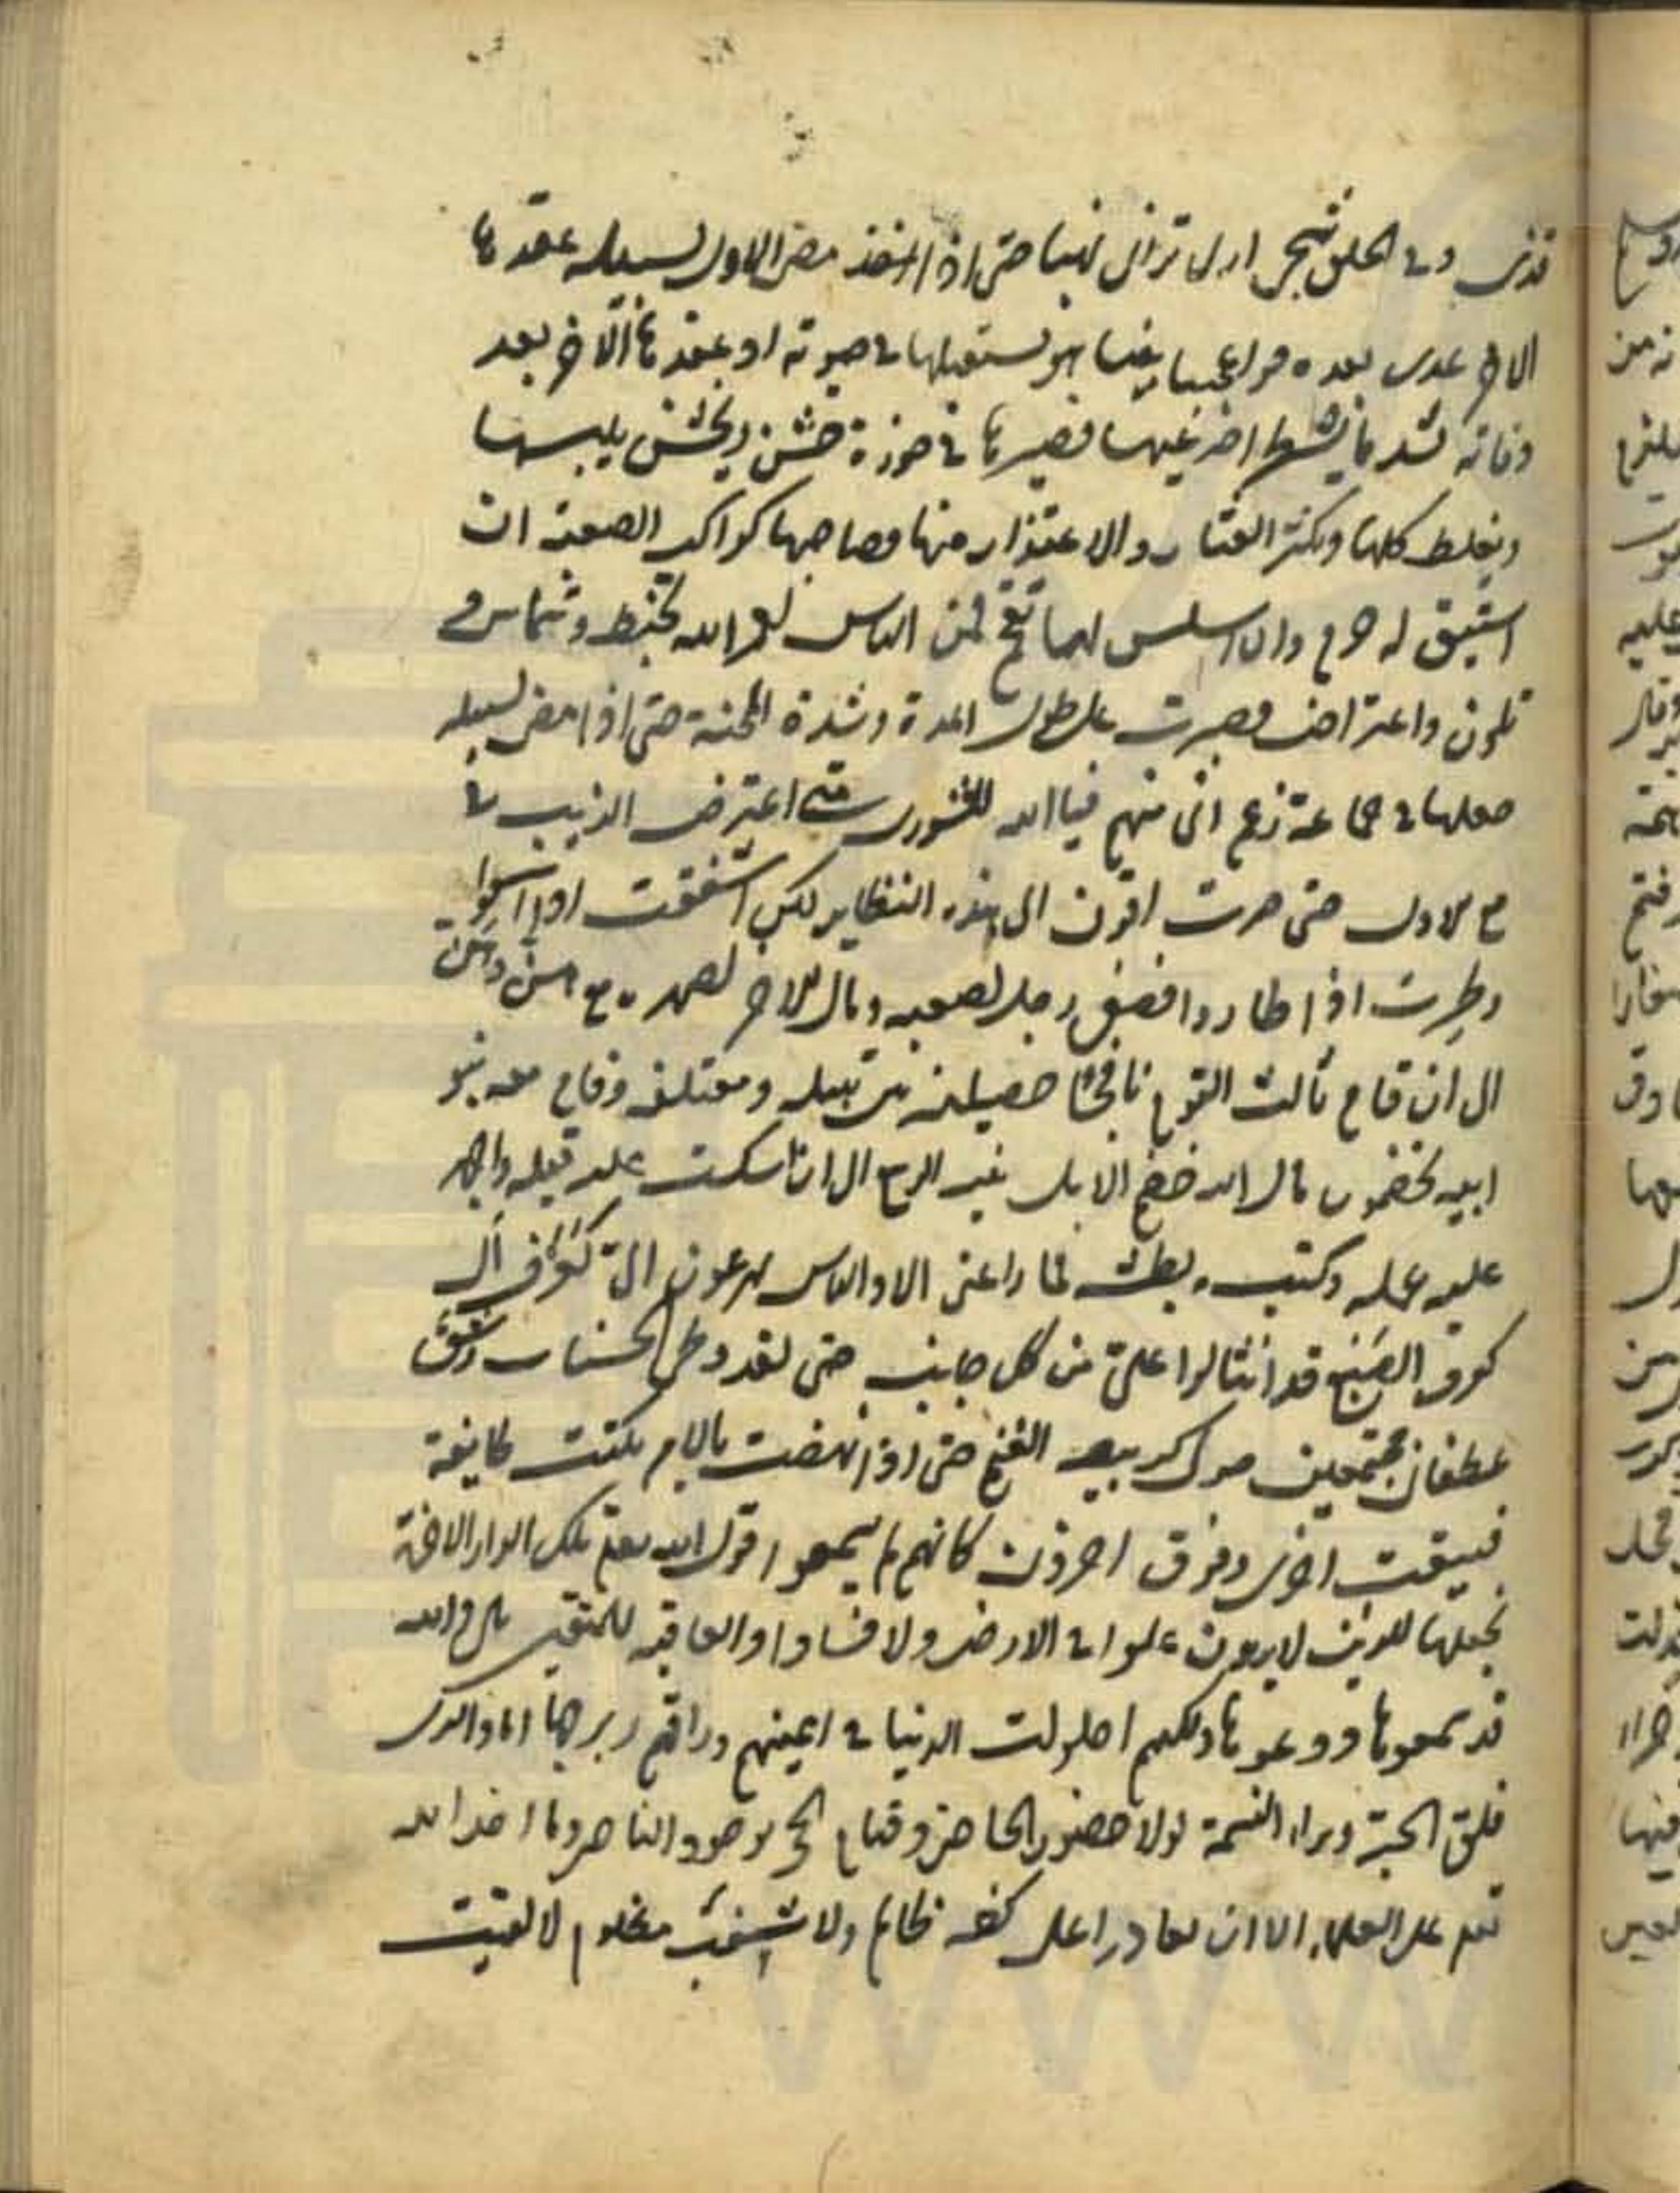 قذى وفي الحلق شجى ارى تراثي نهبا حتى اذا مضى الاول لسبيله عقدها
الاخ عدى بعده فوا عجبا بينا هو يستقيلها في حيوته اذ عقدها لاخر بعد
وفاته لشد ما تشطرا ضرعيها فصيرها في حوزة خشن يخشن يلمسها
ويغلظ كلها ويكثر العثار والاعتذار منها فصاحبها كراكب الصعبة ان
اشنق له خرم وان اسلس لها تقحم فمنى الناس لعمر الله بخبط وشماس و
تلون واعتراض فصبرت على طول المدة وشدة المحنة حتى اذا مضى لسبيله
جعلها في جماعة زعم اني منهم فيا الله للشورى متى اعترض الريب في
مع الاول حتى صرت اقرن الى هذه النظاير لكني اسففت اذ اسفوا
وطرت اذ طاروا فصغى رجل لضغنه ومال الاخر لصهره مع هن وهن
الى ان قام ثالث القوم نافجا حضنيه بين نثيله ومعتلفه وقام معه بنو
ابيه يخضمون مال الله خضم الابل نبت الربيع الى ان انتكث عليه فتله واجهز
عليه عمله وكبت به بطنته فما راعني الا والناس يهرعون الي كعرف ال
كعرف الضبع قد انثالوا علي من كل جانب حتى لقد وطئ الحسنان وشق
عطفاي مجتمعين حولي كربيضة الغنم حتى اذا نهضت بالامر نكثت طايفة
فسقت اخرى ومرق اخرون كانهم لم يسمعوا قول الله تعالى تلك الدار الاخرة
نجعلها للذين لا يريدون علوا في الارض ولا فسادا والعاقبة للمتقين بلى والله
قد سمعوها ووعوها ولكنهم احلولت الدنيا في اعينهم وراقهم زبرجها اما والذى
فلق الحبة وبراء النسمة لولا حضور الحاضر وقيام الحجة بوجود الناصر وما اخذ الله
تعالى على العلماء الا ان لا يقاروا على كظة ظالم ولا سغب مظلوم لالقيت